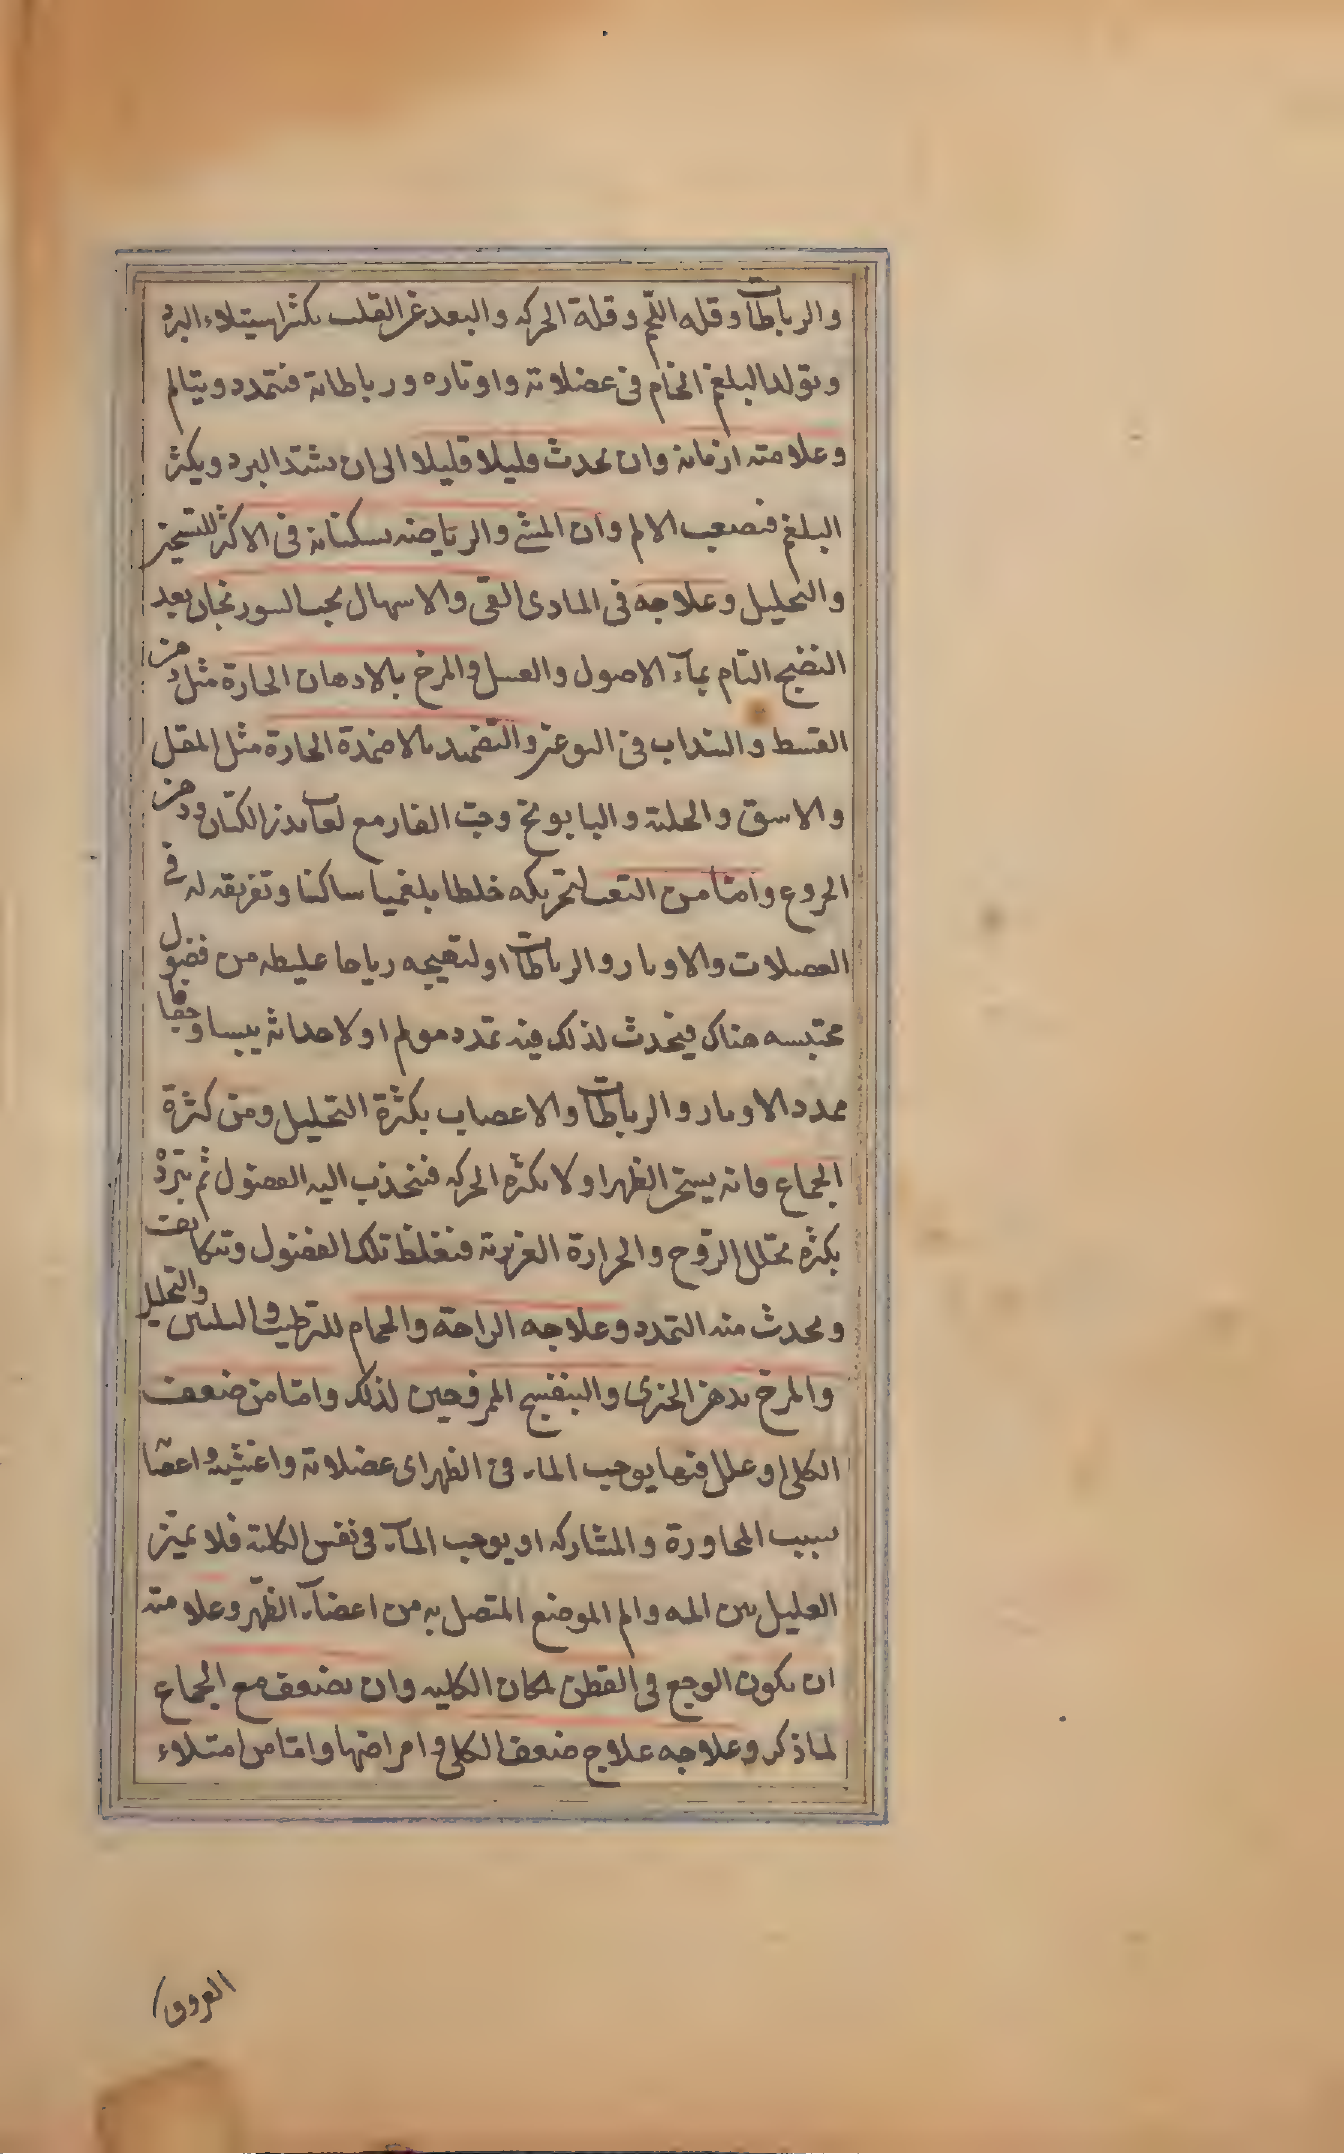 والرباطات وقله اللحم وقلة الحركه والبعد عن القلب يكثر استيلاء البرد
وتولد البلغم الخام فى عضلاته واوتاره ورباطاته فتمدد ويتالم
وعلامته ازمانه وان يحدث قليلا قليلا الى ان يشتد البرد ويكثر
البلغم فيصعب الالم وان المشى والرياضه يسكنانه فى الاكثر للتسخين
والتحليل وعلاجه فى المادى القى والاسهال بحب السورنجان بعد
النضج التام بماء الاصول والعسل والمرخ بالادهان الحارة مثل دهن
القسط والسنداب فى النوعين والتضميد بالاضمدة الحارة مثل المقل
والاشق والحلبه والبابونج وحب الغار مع لعاب بذر الكتان ودهن
الخروع واما من التعب لتحريكه خلطا بلغميا ساكنا وتفريقه له فى
العضلات والاوتار والرباطات او لتهييجه رياحا غليظه من فضول
محتبسه هناك فيحدث لذلك فيه تمدد مولم او لاحداثه يبسا وجفافا
يمدد الاوتار والرباطات والاعصاب بكثرة التحليل ومن كثرة
الجماع فانه يسخن الظهر اولا بكثرة الحركه فينجذب اليه الفضول ثم تبرد
بكثره تحلل الروح والحرارة الغريزية فتغلظ تلك الفضول وتتكاثف
ويحدث منه التمدد وعلاجه الراحة والحمام للترطيب والتليين والتحليل
والمرخ بدهن الخيرى والبنفسج المروجين لذلك واما من ضعف
الكلى او علل فيها يوجب الماء فى الظهر اى عضلاته واغشيته واعصا
بسبب المجاورة والمشاركه او يوجب الماء فى نفس الكلية فلا يميز
العليل بين المه والم الموضع المتصل به من اعضاء الظهر وعلامته
ان يكون الوجع فى القطن لمكان الكليه وان يضعف مع الجماع
لما ذكر وعلاجه علاج ضعف الكلى وامراضها واما من امتلاء
العروق